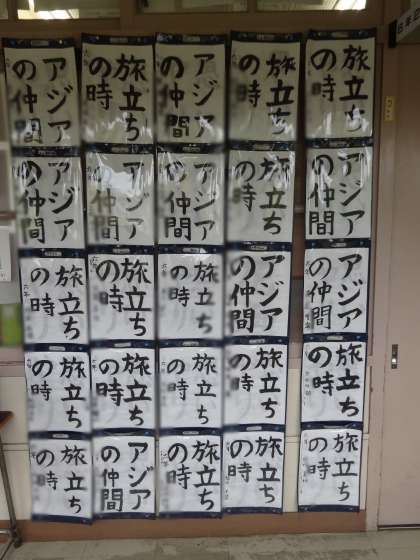 アジア
の仲間
旅立ち
の時
アジア
の仲間
旅立ち
の時
旅立ち
の時
アジア
の仲間
アジア
の仲間
アジア
の仲間
旅立ち
の時
アジア
の仲間
旅立ち
の時
旅立ち
の時
旅立ち
の時
アジア
の仲間
アジア
の仲間
旅立ち
の時
旅立ち
の時
旅立ち
の時
旅立ち
の時
旅立ち
の時
旅立ち
の時
アジア
の仲間
旅立ち
の時
旅立ち
の時
旅立ち
の時